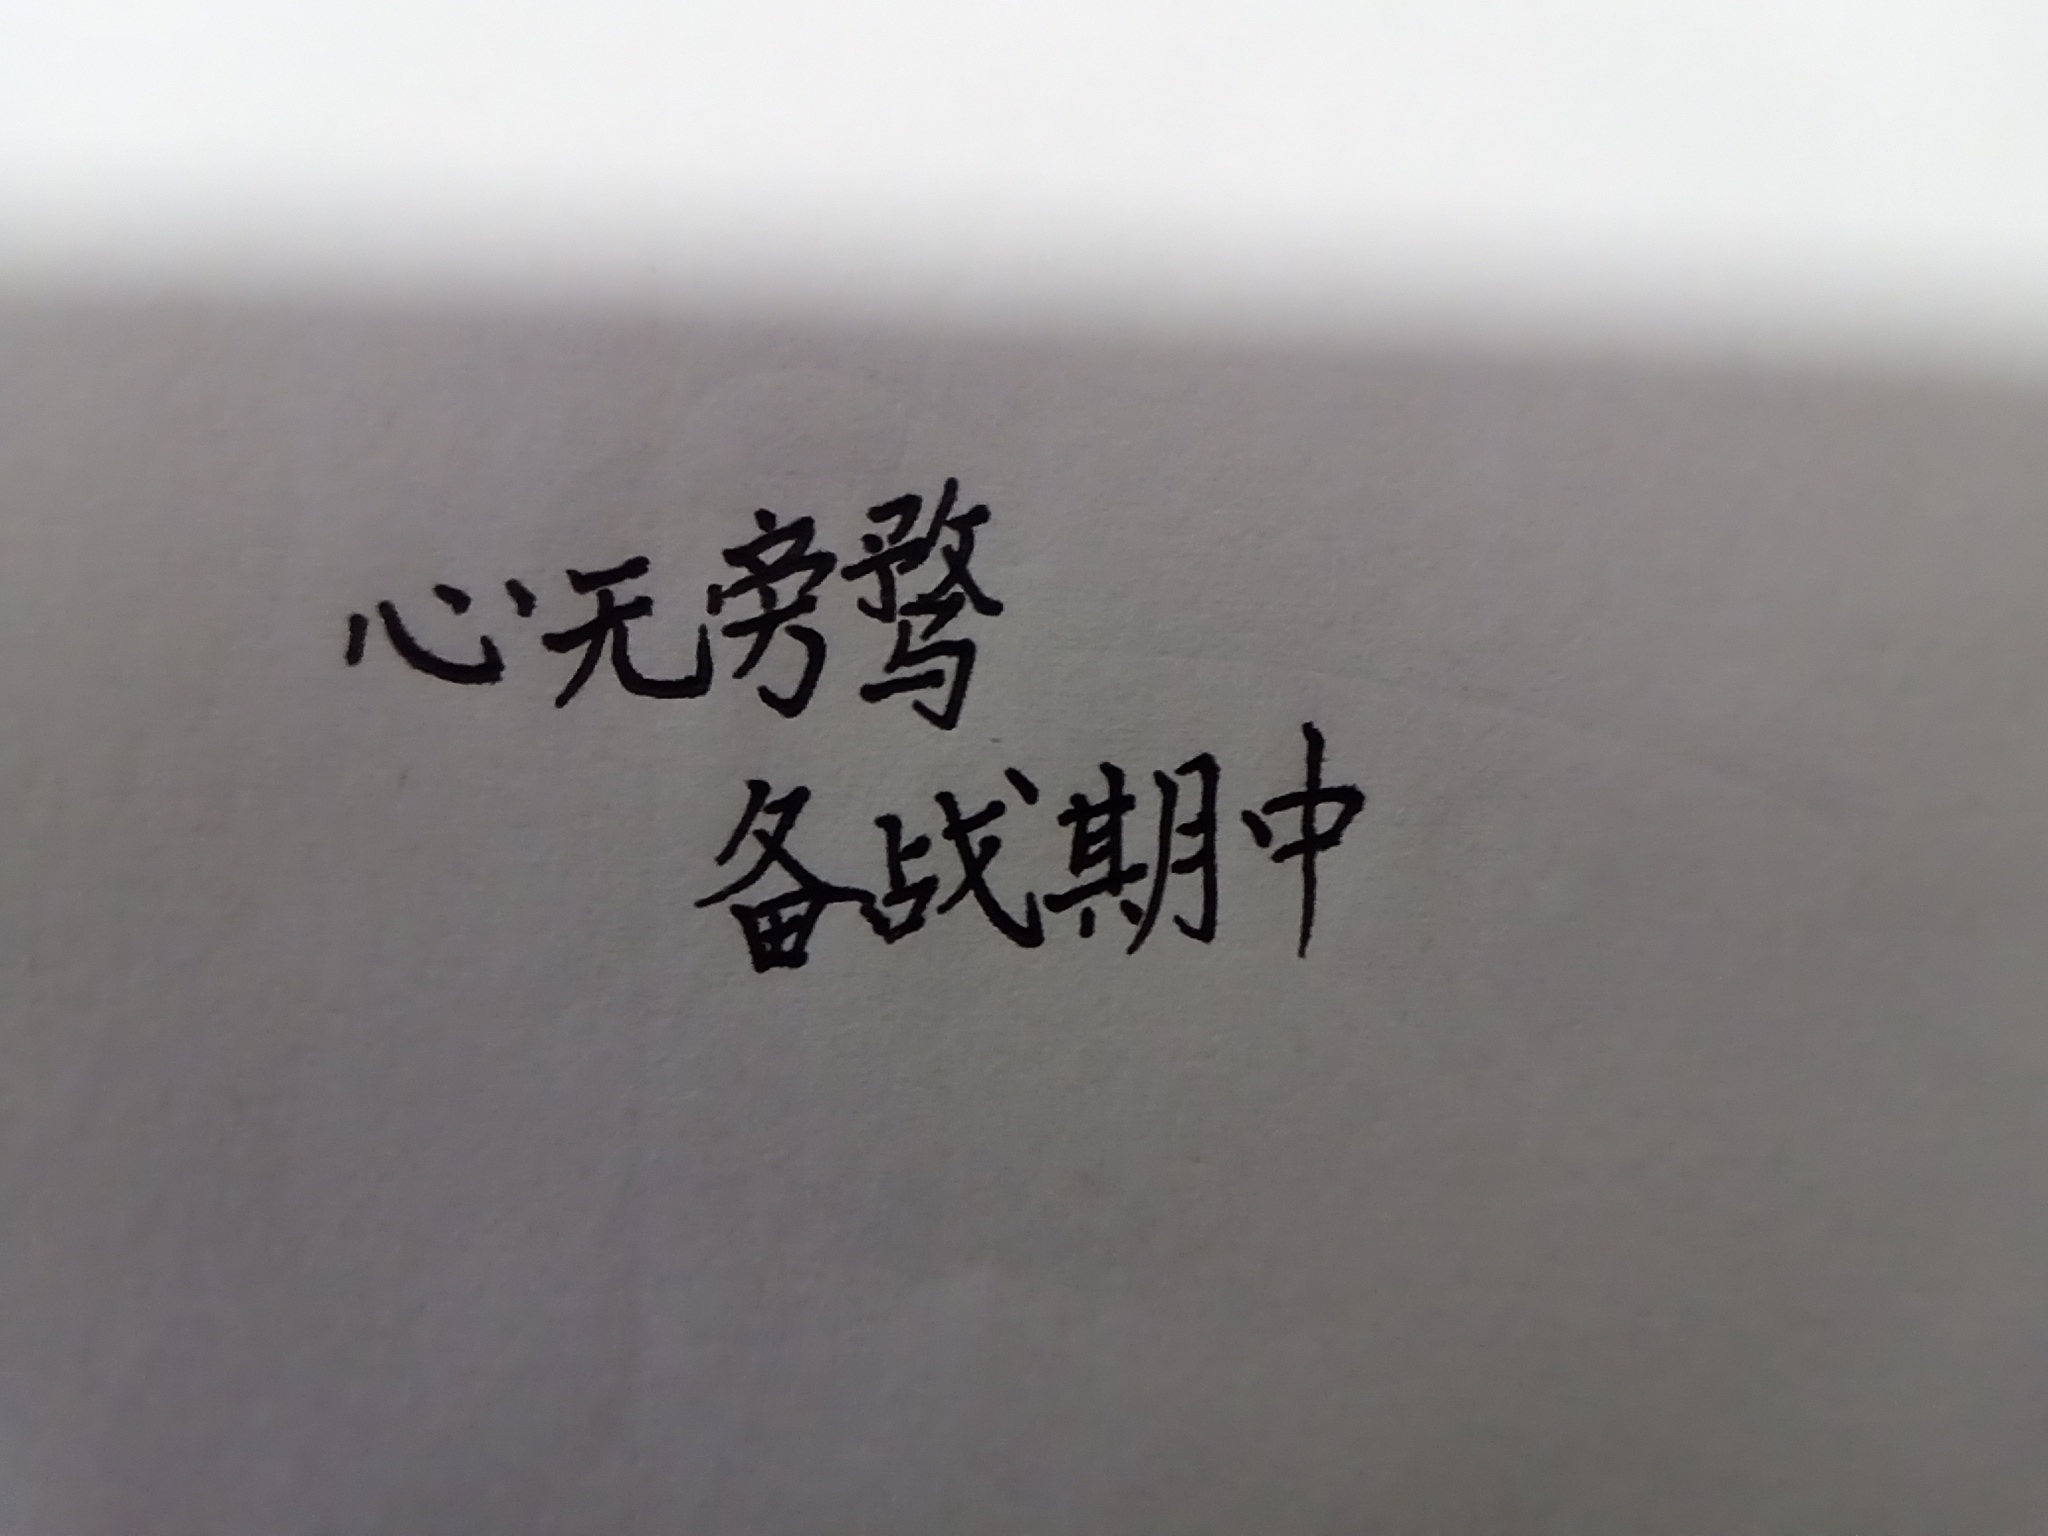 心无旁骛
备战期中